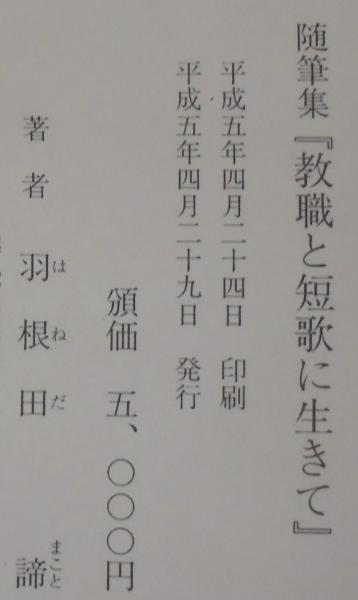 随筆集『教職と短歌に生きて』
平成五年四月二十四日 印刷
平成五年四月二十九日 発行
頒価 五、〇〇〇円
著者 羽根田 諦
はねだ まこと